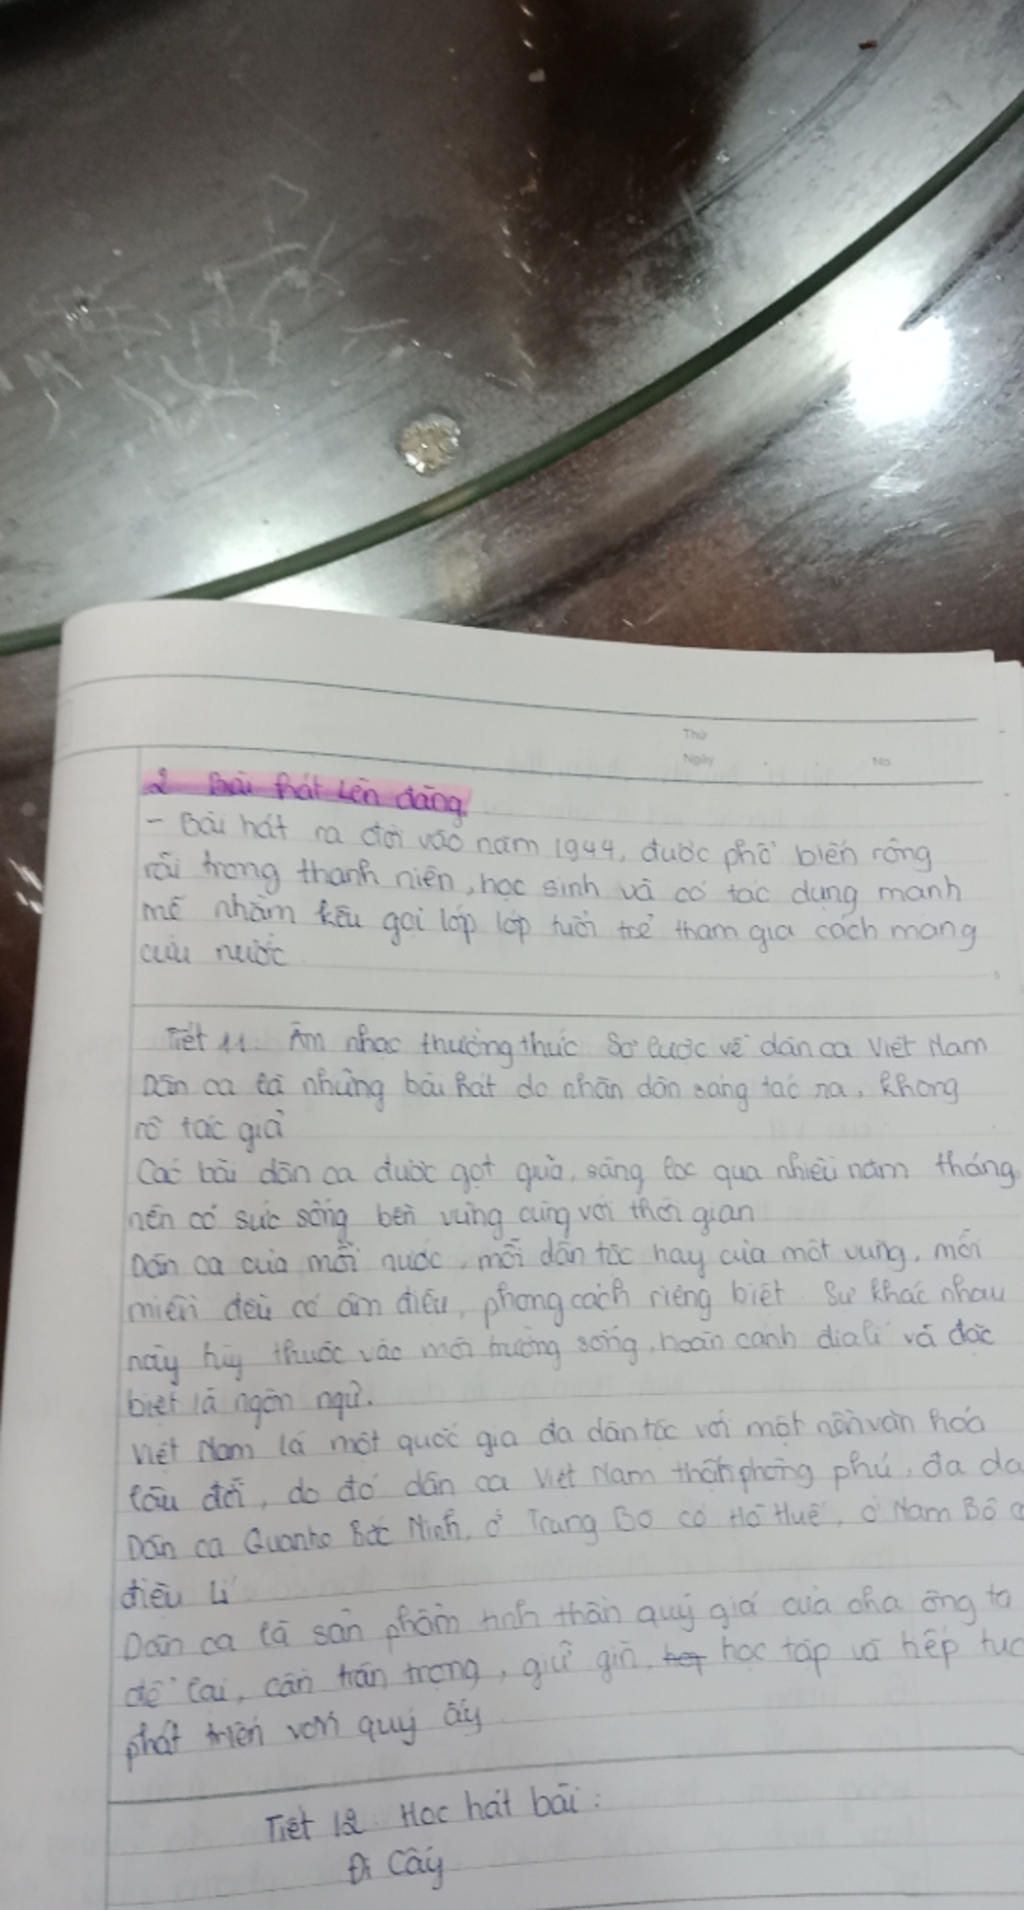 Thứ
Ngày No.
2 Bài hát Lên đàng.
- Bài hát ra đời vào năm 1944, được phổ biến rộng
rãi trong thanh niên, học sinh và có tác dụng mạnh
mẽ nhằm kêu gọi lớp lớp tuổi trẻ tham gia cách mạng
cứu nước
Tiết 11: Âm nhạc thường thức Sơ lược về dân ca Việt Nam
Dân ca là những bài hát do nhân dân sáng tác ra, không
rõ tác giả
Các bài dân ca được gọt giũa, sàng lọc qua nhiều năm tháng
nên có sức sống bền vững cùng với thời gian
Dân ca của mỗi nước, mỗi dân tộc hay của một vùng, mỗi
miền đều có âm điệu, phong cách riêng biệt. Sự khác nhau
này tùy thuộc vào môi trường sống, hoàn cảnh địa lí và đặc
biệt là ngôn ngữ.
Việt Nam là một quốc gia đa dân tộc với một nền văn hóa
lâu đời, do đó dân ca Việt Nam thật phong phú, đa da
Dân ca Quan họ Bắc Ninh, ở Trung Bộ có Hò Huế, ở Nam Bộ c
điệu Lí
Dân ca là sản phẩm tinh thần quý giá của cha ông ta
để lại, cần trân trọng, giữ gìn, học tập và tiếp tục
phát triển vốn quý ấy
Tiết 12: Học hát bài:
Đi Cấy